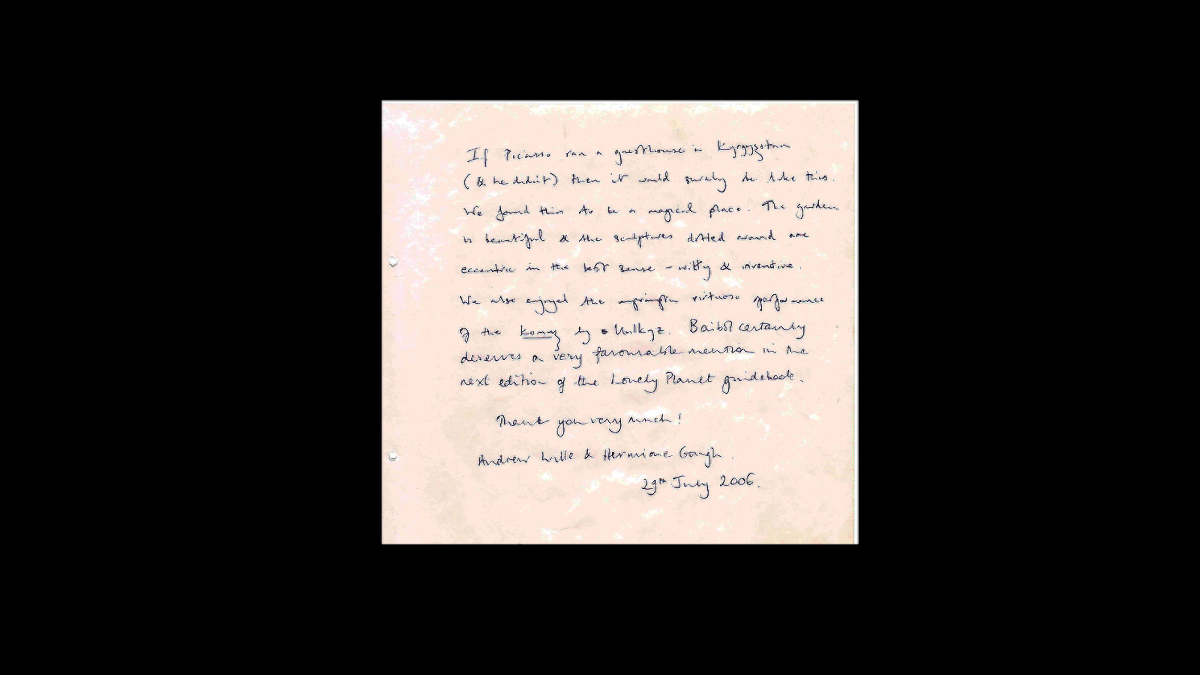 If Picasso ran a guesthouse in Kyrgyzstan
(& he didn't) then it would surely be like this.
We found this to be a magical place. The garden
is beautiful & the sculptures dotted around are
eccentric in the best sense - witty & inventive.
We also enjoyed the impromptu virtuoso performance
of the komuz by
Baibol certainly
deserves a very favourable mention in the
next edition of the Lonely Planet guidebook.
Thank you very much!
Andrew Wille & Hermione Gough.
29th July 2006.